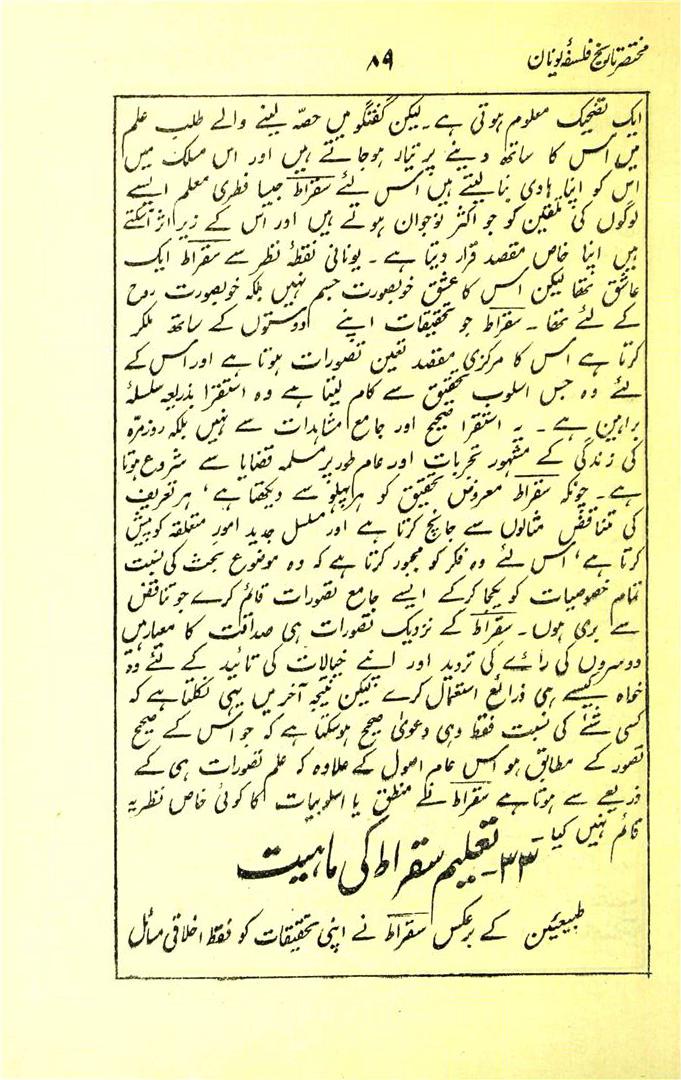 مختصر تاریخ فلسفۂ یونان
۸۹
ایک تضحیک معلوم ہوتی ہے۔ لیکن گفتگو میں حصّہ لینے والے طلب علم
میں اس کا ساتھ دینے پر تیار ہوجاتے ہیں اور اس مسلک میں
اس کو اپنا ہادی بنالیتے ہیں اس لئے سقراط جیسا فطری معلم ایسے
لوگوں کی تلقین کو جو اکثر نوجوان ہوتے ہیں اور اس کے زیر اثر آسکتے
ہیں اپنا خاص مقصد قرار دیتا ہے۔ یونانی نقطۂ نظر سے سقراط ایک
عاشق تھا لیکن اس کا عشق خوبصورت جسم نہیں بلکہ خوبصورت روح
کے لئے تھا۔ سقراط جو تحقیقات اپنے دوستوں کے ساتھ ملکر
کرتا ہے اس کا مرکزی مقصد تعین تصورات ہوتا ہے اور اس کے
لئے وہ جس اسلوب تحقیق سے کام لیتا ہے وہ استقرا بذریعہ سلسلۂ
براہین ہے۔ یہ استقرا صحیح اور جامع مشاہدات سے نہیں بلکہ روزمرّہ
کی زندگی کے مشہور تجربات اور عام طور پر مسلمہ قضایا سے شروع ہوتا
ہے۔ چونکہ سقراط معروض تحقیق کو ہر پہلو سے دیکھتا ہے، ہر تعریف
کی متناقض مثالوں سے جانچ کرتا ہے اور مسلسل جدید امور متعلقہ کو پیش
کرتا ہے، اس لئے وہ فکر کو مجبور کرتا ہے کہ وہ موضوع بحث کی نسبت
تمام خصوصیات کو یکجا کرکے ایسے جامع تصورات قائم کرے جو تناقض
سے بری ہوں۔ سقراط کے نزدیک تصورات ہی صداقت کا معیار ہیں
دوسروں کی رائے کی تردید اور اپنے خیالات کی تائید کے لئے وہ
خواہ کیسے ہی ذرائع استعمال کرے لیکن نتیجہ آخر میں یہی نکلتا ہے کہ
کسی شئے کی نسبت فقط وہی دعویٰ صحیح ہوسکتا ہے کہ جو اس کے صحیح
تصور کے مطابق ہو اس عام اصول کے علاوہ کہ علم تصورات ہی کے
ذریعے سے ہوتا ہے سقراط نے منطق یا اسلوبیات کا کوئی خاص نظریہ
قائم نہیں کیا۔
۳۳۔ تعلیم سقراط کی ماہیت
طبیعیّین کے برعکس سقراط نے اپنی تحقیقات کو فقط اخلاقی مسائل